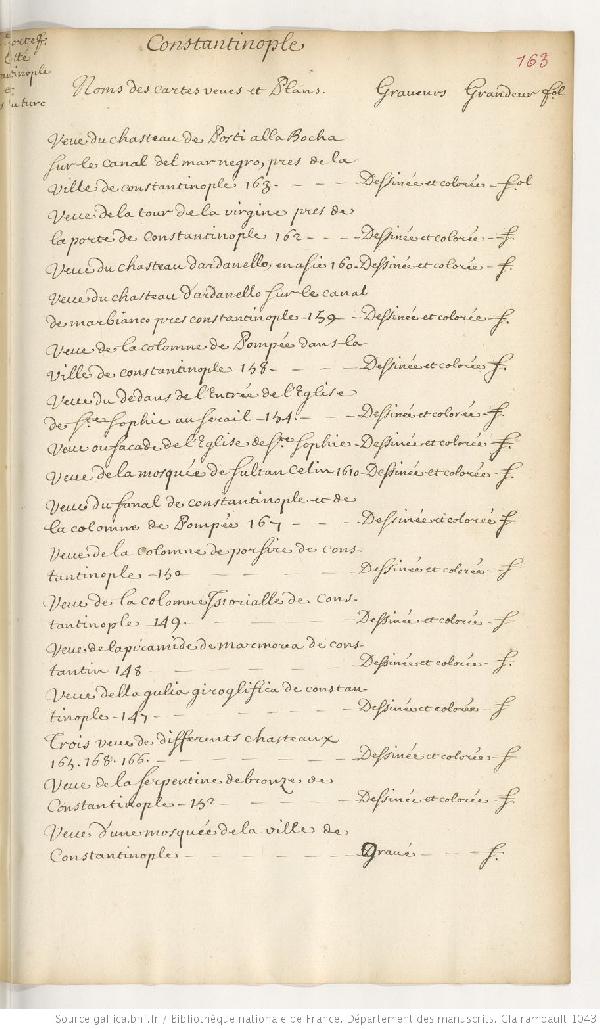 Constantinople
163
Noms des cartes veues et Plans. Graveurs Grandeur fol
Veue du chasteau de Posti alla Bocha
sur le canal del mar negro, pres de la
Ville de constantinople 163. - - - Dessinée et colorée - fol
Veue de la tour de la virgine pres de
la porte de Constantinople 162 - - - Dessinée et colorée - f.
Veue du chasteau dardanello, en asie 160 - Dessinée et colorée - f.
Veue du chasteau d'ardanello sur le canal
de mar bianco pres constantinople - 159 - Dessinée et colorée - f.
Veue de la colomne de Pompée dans la
Ville de constantinople 158 - - - Dessinée et colorée f.
Veue du dedans de l'Entrée de l'Eglise
de Ste Sophie au serail - 154 - - Dessinée et colorée - f.
Veue ou facade de l'Eglise de Ste Sophie - Dessinée et colorée - f.
Veue de la mosquée de sultan Celin 1610 - Dessinée et colorée - f.
Veue du fanal de constantinople et de
la colomne de Pompée 167 - - - Dessinée et colorée f
Veue de la colomne de porfire de cons-
tantinople - 150 - - - - Dessinée et colorée - f
Veue de la colomne Istorialle de Cons-
tantinople 149. - - - - Dessinée et colorée - f
Veue de la piramide de marmora de cons-
tantin 148 - - - - Dessinée et colorée - f.
Veue della gulia giroglifica de constan-
tinople - 147 - - - - Dessinée et colorée - f
Trois veue de differents chasteaux
165. 168. 166. - - - - Dessinée et colorée - f
Veue de la serpentine de bronze de
Constantinople - 152 - - - - Dessinée et colorée - f
Veue d'une mosquée de la ville de
Constantinople - - - - Gravé - - - f.
Source gallica.bnf.fr / Bibliothèque nationale de France. Département des manuscrits. Clairambault 1043